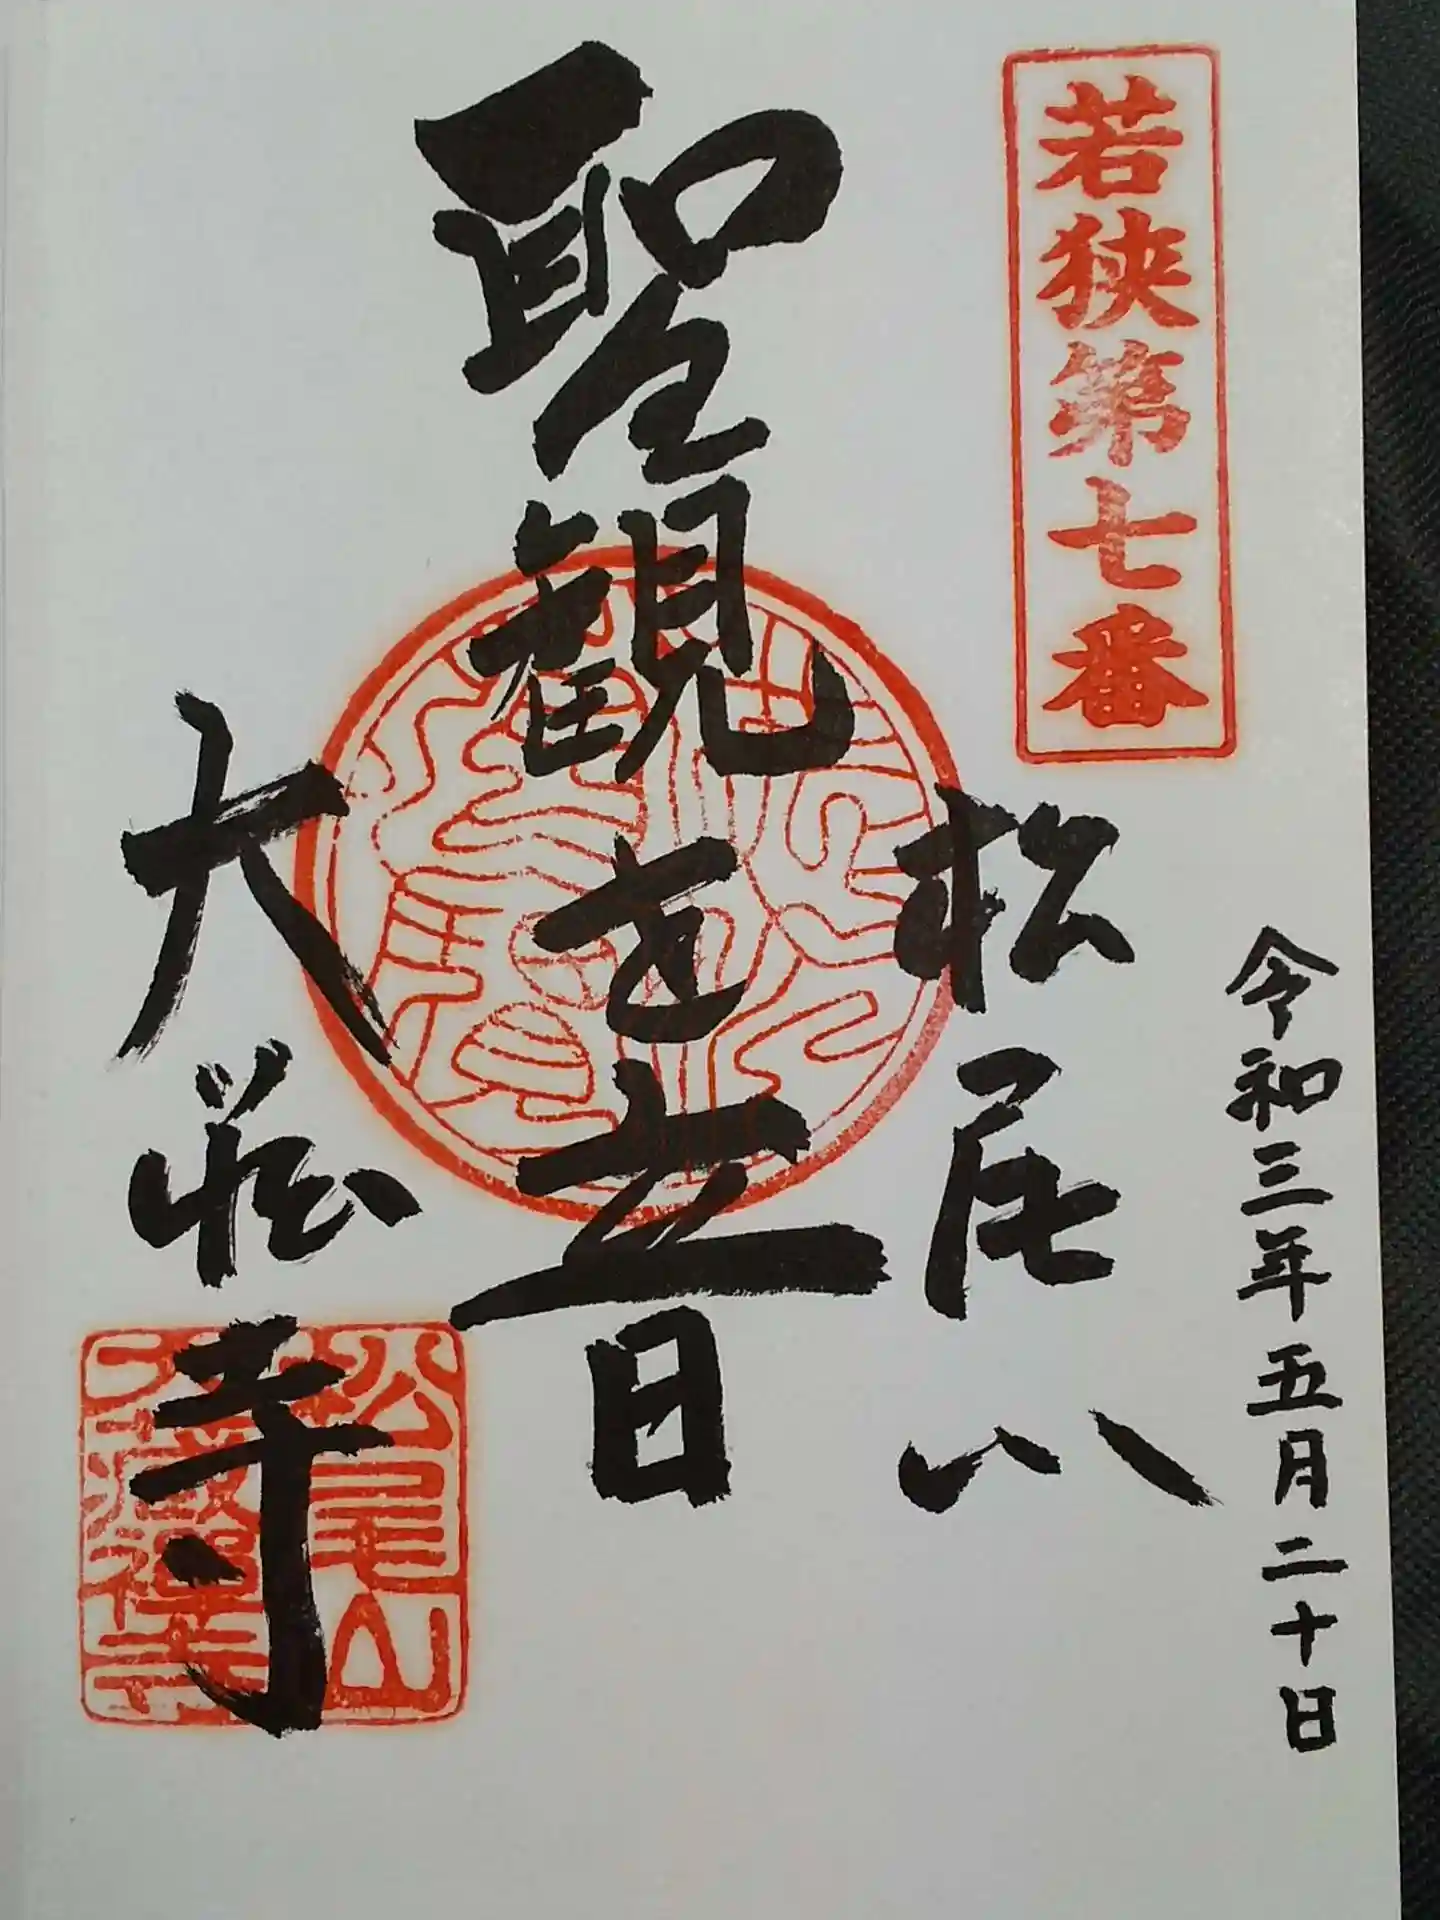 令和三年五月二十日
若狭第七番
松尾山
聖観世音
大蔵寺
松尾山
大蔵禅寺